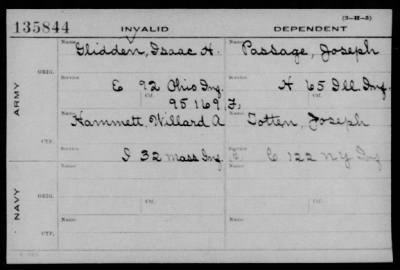 (3-H-3)
135844 INVALID DEPENDENT
Name Glidden, Isaac H. Name Passage, Joseph
ORIG. Service E 92 Ohio Inf. Service H 65 Ill. Inf.
Ctf. 95169 Ctf.
ARMY
Name Hammett, Willard A Name Totten, Joseph
CTF. Service I 32 Mass Inf. Service C 122 N Y Inf
Name Name
NAVY ORIG. Ctf. Ctf.
Name Name
CTF.